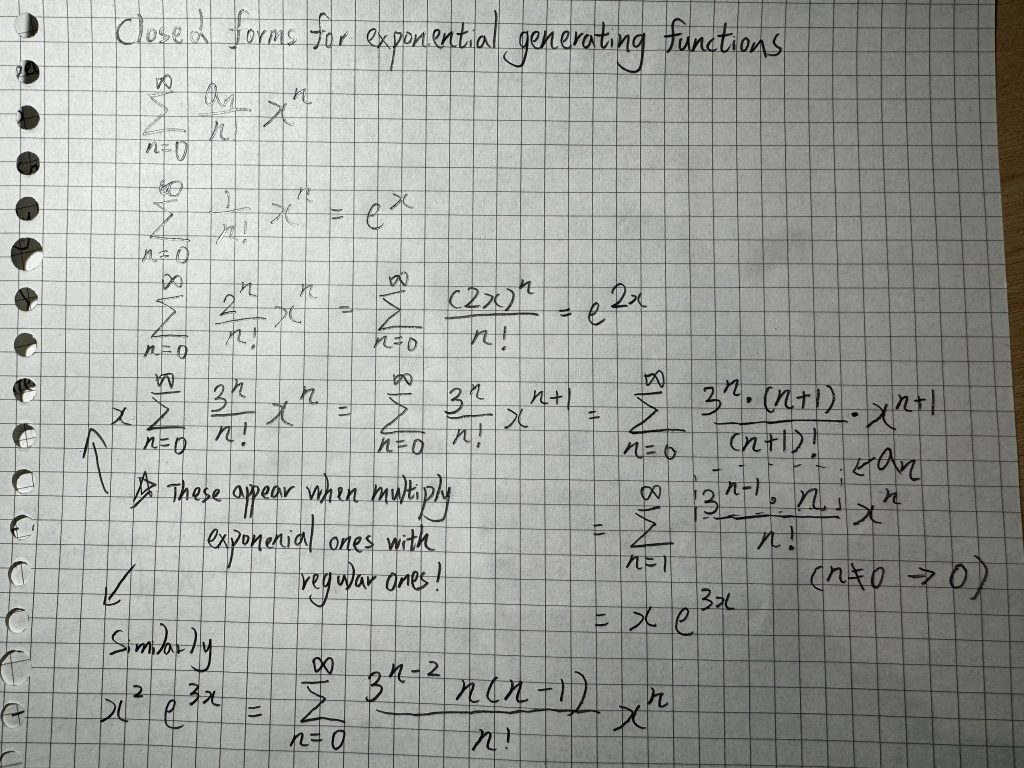 Closed forms for exponential generating functions
∑_{n=0}^{∞} \frac{a_n}{n!} x^n
∑_{n=0}^{∞} \frac{1}{n!} x^n = e^x
∑_{n=0}^{∞} \frac{2^n}{n!} x^n = ∑_{n=0}^{∞} \frac{(2x)^n}{n!} = e^{2x}
x ∑_{n=0}^{∞} \frac{3^n}{n!} x^n = ∑_{n=0}^{∞} \frac{3^n}{n!} x^{n+1} = ∑_{n=0}^{∞} \frac{3^n · (n+1)}{(n+1)!} · x^{n+1}
← a_n
= ∑_{n=1}^{∞} \frac{3^{n-1} · n}{n!} x^n
(n≠0 → 0)
= x e^{3x}
☆ These appear when multiply
exponenial ones with
regular ones!
Similarly
x^2 e^{3x} = ∑_{n=0}^{∞} \frac{3^{n-2} n(n-1)}{n!} x^n